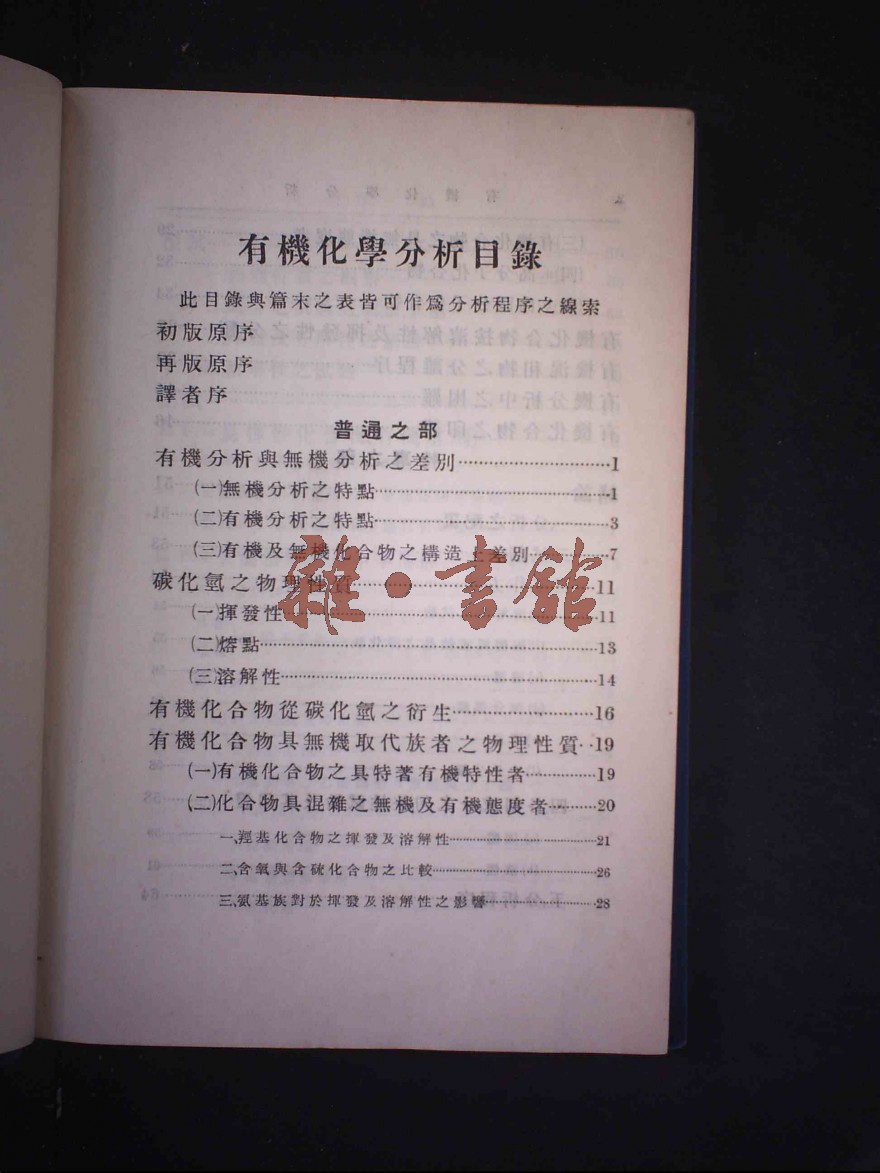 有機化學分析目錄
此目錄與篇末之表皆可作爲分析程序之線索
初版原序
再版原序
譯者序
普通之部
有機分析與無機分析之差別…………1
㈠無機分析之特點…………1
㈡有機分析之特點…………3
㈢有機及無機化合物之構造上差別…………7
碳化氫之物理性質…………11
㈠揮發性…………11
㈡熔點…………13
㈢溶解性…………14
有機化合物從碳化氫之衍生…………16
有機化合物具無機取代族者之物理性質…19
㈠有機化合物之具特著有機特性者…………19
㈡化合物具混雜之無機及有機態度者…………20
一、羥基化合物之揮發及溶解性…………21
二、含氧與含硫化合物之比較…………26
三、氨基族對於揮發及溶解性之影響…………28
雜·書舘